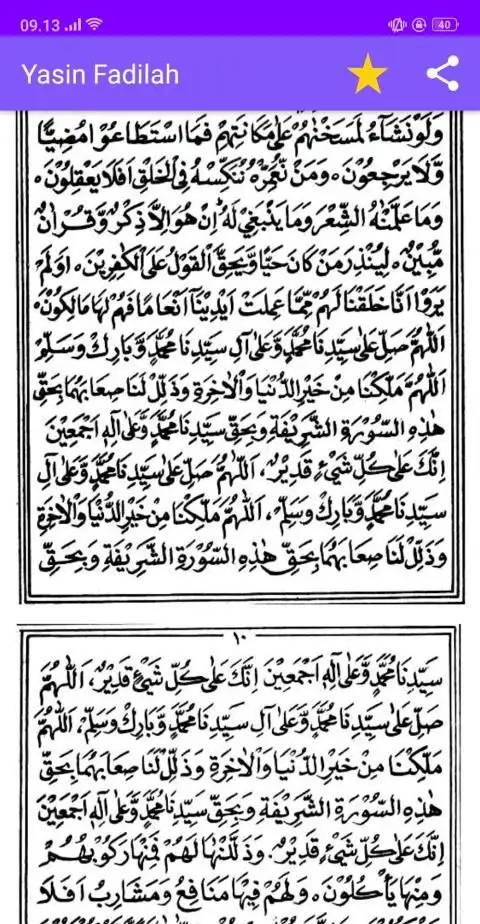 09.13
40
Yasin Fadilah
وَلَوْ نَشَاءُ لَمَسَخْنٰهُمْ عَلٰى مَكَانَتِهِمْ فَمَا اسْتَطَاعُوْا مُضِيًّا
وَّلَا يَرْجِعُوْنَ. وَمَنْ نُعَمِّرْهُ نُنَكِّسْهُ فِى الْخَلْقِ اَفَلَا يَعْقِلُوْنَ.
وَمَا عَلَّمْنٰهُ الشِّعْرَ وَمَا يَنْبَغِيْ لَهُ اِنْ هُوَ اِلَّا ذِكْرٌ وَّقُرْاٰنٌ
مُّبِيْنٌ. لِيُنْذِرَ مَنْ كَانَ حَيًّا وَّيَحِقَّ الْقَوْلُ عَلَى الْكٰفِرِيْنَ. اَوَلَمْ
يَرَوْا اَنَّا خَلَقْنَا لَهُمْ مِّمَّا عَمِلَتْ اَيْدِيْنَا اَنْعَامًا فَهُمْ لَهَا مَالِكُوْنَ.
اَللّٰهُمَّ صَلِّ عَلٰى سَيِّدِنَا مُحَمَّدٍ وَّعَلٰى آلِ سَيِّدِنَا مُحَمَّدٍ وَّبَارِكْ وَسَلِّمْ
اَللّٰهُمَّ مَلِّكْنَا مِنْ خَيْرِ الدُّنْيَا وَالْاٰخِرَةِ وَذَلِّلْ لَنَا صِعَابَهُمَا بِحَقِّ
هٰذِهِ السُّوْرَةِ الشَّرِيْفَةِ وَبِحَقِّ سَيِّدِنَا مُحَمَّدٍ وَّعَلٰى آلِهِ اَجْمَعِيْنَ
اِنَّكَ عَلٰى كُلِّ شَيْءٍ قَدِيْرٌ، اَللّٰهُمَّ صَلِّ عَلٰى سَيِّدِنَا مُحَمَّدٍ وَّعَلٰى آلِ
سَيِّدِنَا مُحَمَّدٍ وَّبَارِكْ وَسَلِّمْ، اَللّٰهُمَّ مَلِّكْنَا مِنْ خَيْرِ الدُّنْيَا وَالْاٰخِرَةِ
وَذَلِّلْ لَنَا صِعَابَهُمَا بِحَقِّ هٰذِهِ السُّوْرَةِ الشَّرِيْفَةِ وَبِحَقِّ
١٠
سَيِّدِنَا مُحَمَّدٍ وَّعَلٰى آلِهِ اَجْمَعِيْنَ اِنَّكَ عَلٰى كُلِّ شَيْءٍ قَدِيْرٌ، اَللّٰهُمَّ
صَلِّ عَلٰى سَيِّدِنَا مُحَمَّدٍ وَّعَلٰى آلِ سَيِّدِنَا مُحَمَّدٍ وَّبَارِكْ وَسَلِّمْ، اَللّٰهُمَّ
مَلِّكْنَا مِنْ خَيْرِ الدُّنْيَا وَالْاٰخِرَةِ وَذَلِّلْ لَنَا صِعَابَهُمَا بِحَقِّ
هٰذِهِ السُّوْرَةِ الشَّرِيْفَةِ وَبِحَقِّ سَيِّدِنَا مُحَمَّدٍ وَّعَلٰى آلِهِ اَجْمَعِيْنَ
اِنَّكَ عَلٰى كُلِّ شَيْءٍ قَدِيْرٌ. وَذَلَّلْنٰهَا لَهُمْ فَمِنْهَا رَكُوْبُهُمْ
وَمِنْهَا يَأْكُلُوْنَ. وَلَهُمْ فِيْهَا مَنَافِعُ وَمَشَارِبُ اَفَلَا